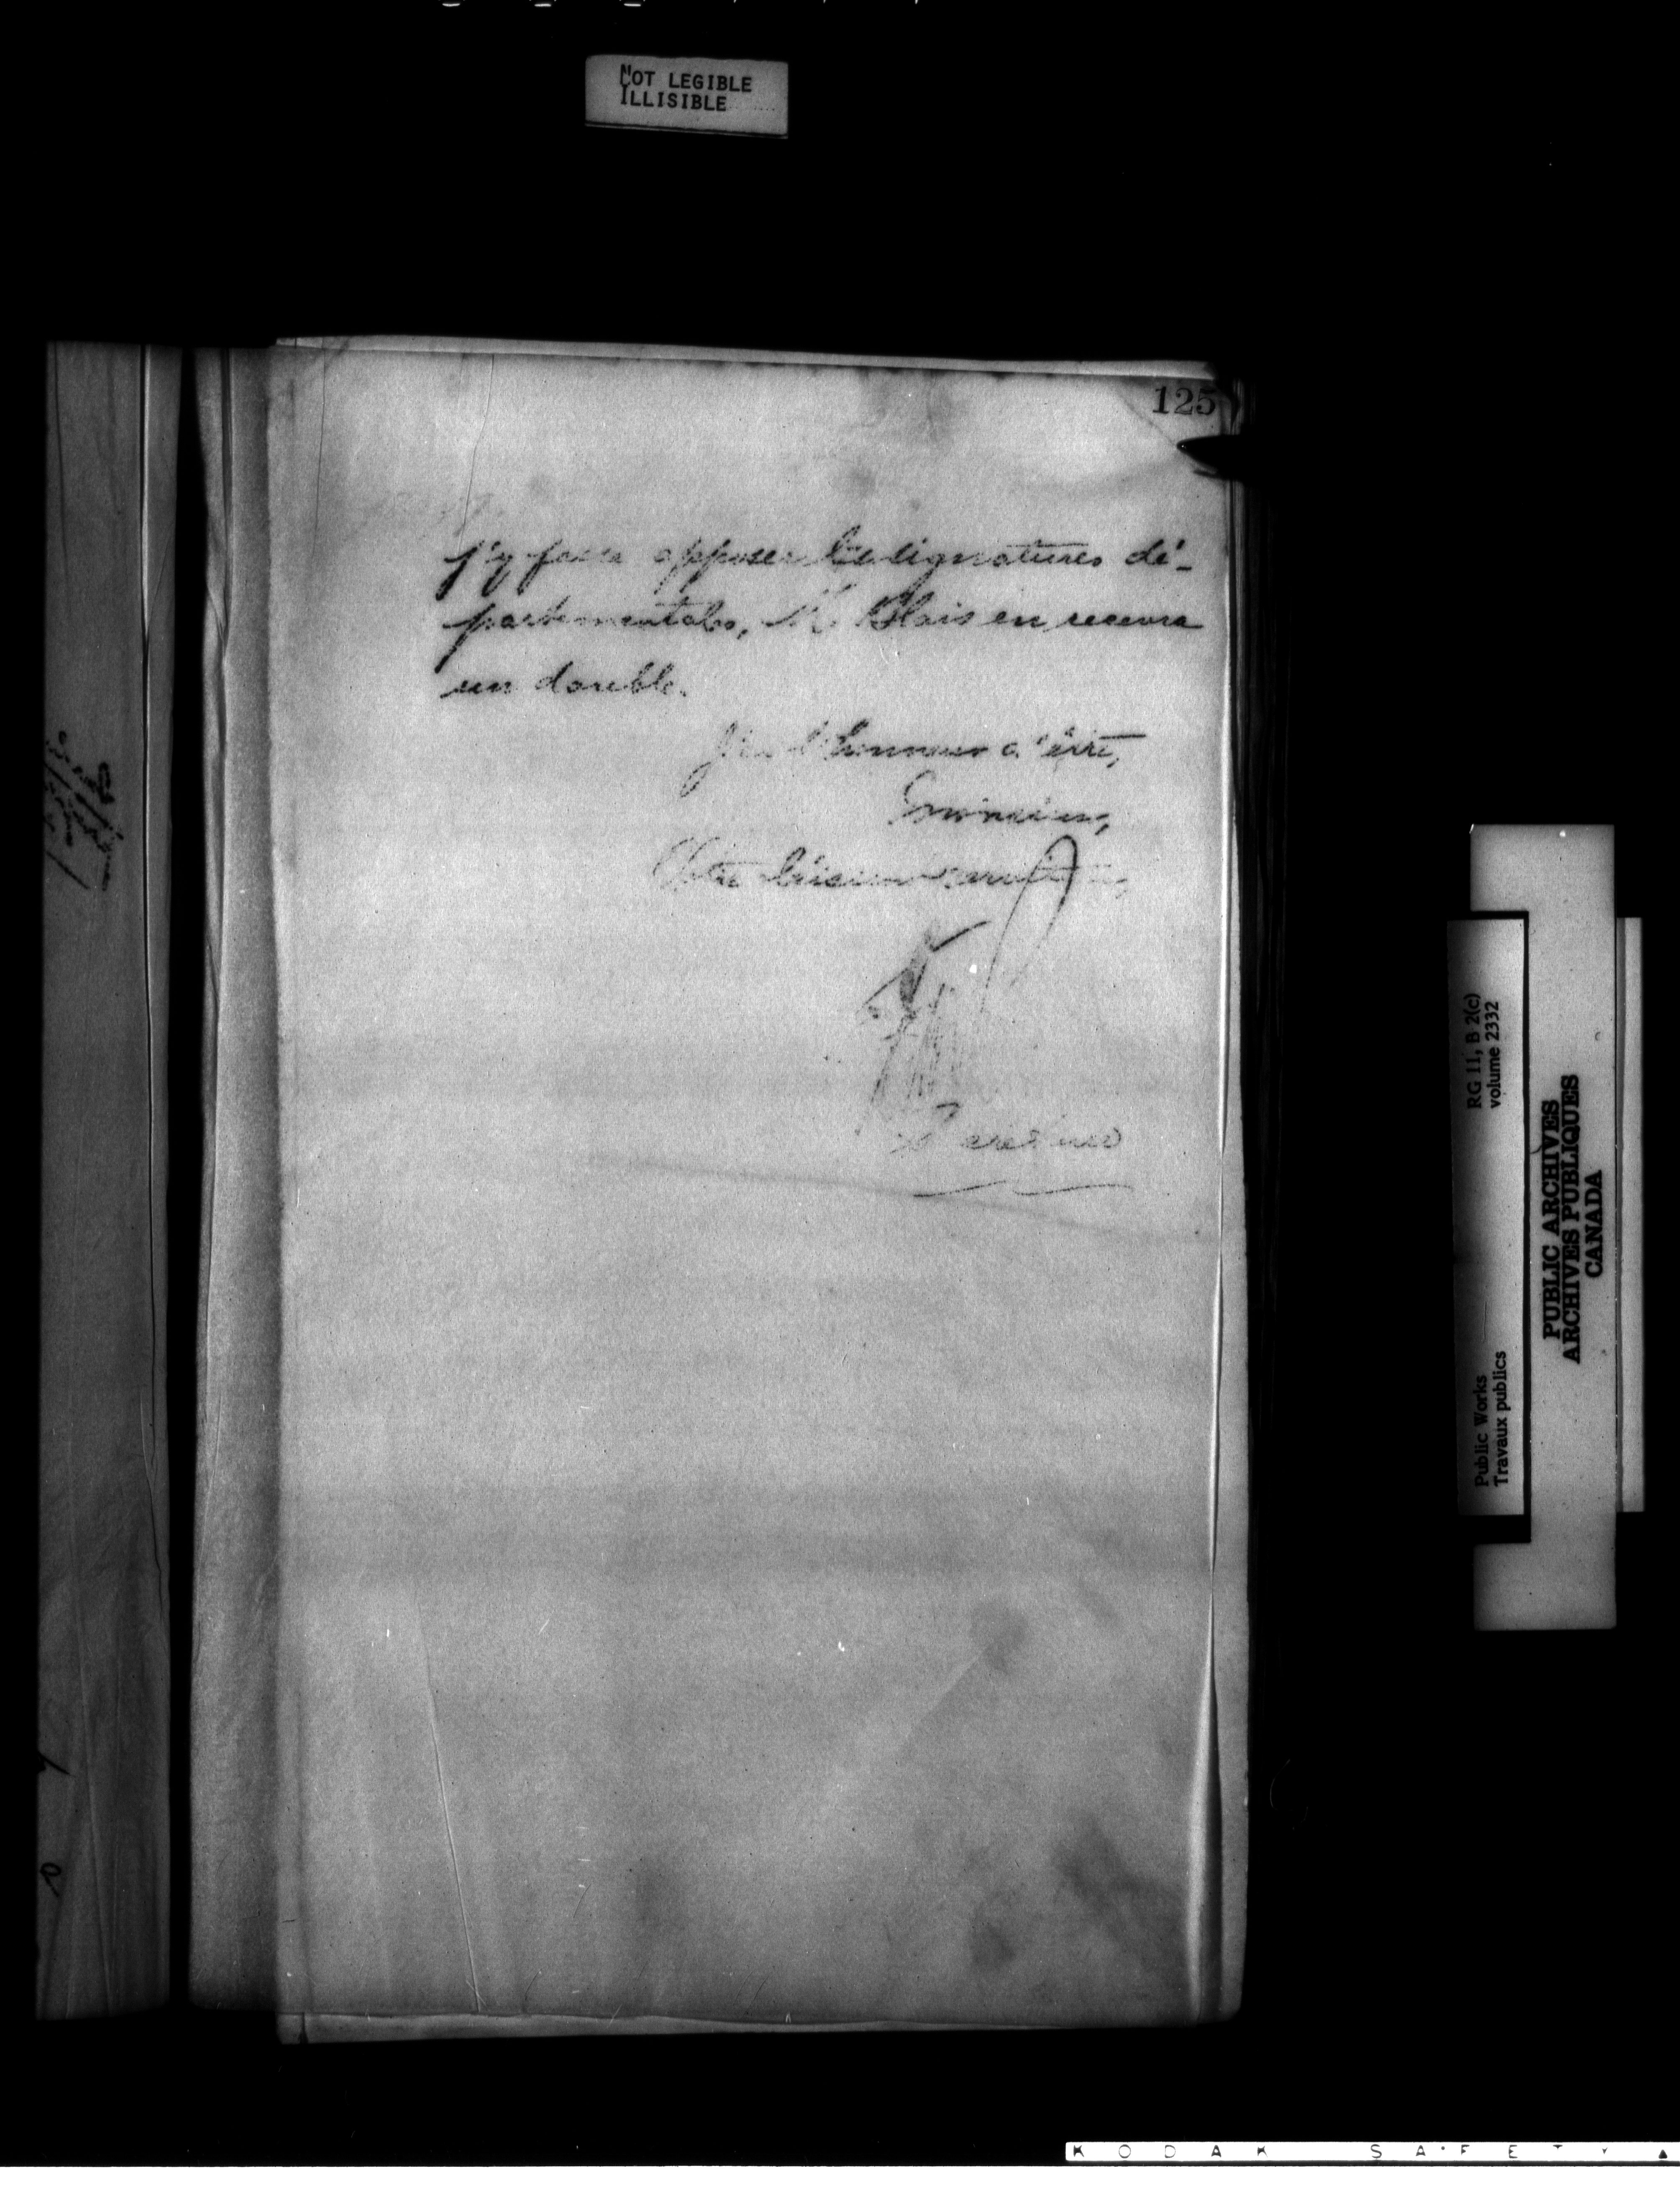 NOT LEGIBLE
ILLISIBLE
125
j'y fasse apposer les signatures dé-
partementales, M. Blais en recevra
un double.
J'ai l'honneur d'être,
Monsieur,
Votre obéissant serviteur,
Secrétaire
RG 11, B 2(c)
volume 2332
Public Works
Travaux publics
PUBLIC ARCHIVES
ARCHIVES PUBLIQUES
CANADA
KODAK SAFETY